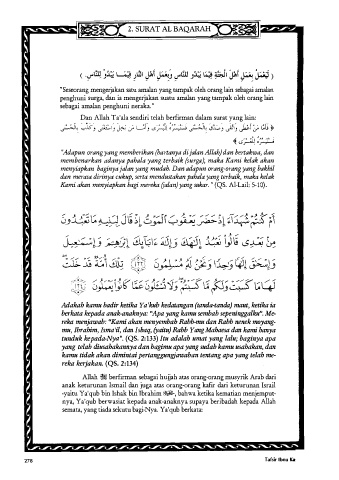 2. SURAT AL BAQARAH
( لَيَعْمَلُ بِعَمَلِ أَهْلِ الْجَنَّةِ فِيْمَا يَبْدُوْ لِلنَّاسِ وَيَعْمَلُ أَهْلِ النَّارِ فِيْمَا يَبْدُوْ لِلنَّاسِ. )
"Seseorang mengerjakan satu amalan yang tampak oleh orang lain sebagai amalan
penghuni surga, dan ia mengerjakan suatu amalan yang tampak oleh orang lain
sebagai amalan penghuni neraka."
Dan Allah Ta'ala sendiri telah berfirman dalam surat yang lain:
﴿ فَأَمَّا مَنْ أَعْطَى وَاتَّقَى وَصَدَّقَ بِالْحُسْنَى فَسَنُيَسِّرُهُ لِلْيُسْرَى وَأَمَّا مَن بَخِلَ وَاسْتَغْنَى وَكَذَّبَ بِالْحُسْنَى
فَسَنُيَسِّرُهُ لِلْعُسْرَى ﴾
"Adapun orang yang memberikan (hartanya di jalan Allah) dan bertakwa, dan
membenarkan adanya pahala yang terbaik (surga), maka Kami kelak akan
menyiapkan baginya jalan yang mudah. Dan adapun orang-orang yang bakhil
dan merasa dirinya cukup, serta mendustakan pahala yang terbaik, maka kelak
Kami akan menyiapkan bagi mereka (jalan) yang sukar." (QS. Al-Lail: 5-10).
أَمْ كُنتُمْ شُهَدَآءَ إِذْ حَضَرَ يَعْقُوبَ الْمَوْتُ إِذْ قَالَ لِبَنِيهِ مَا تَعْبُدُونَ
مِنْ بَعْدِى قَالُوا نَعْبُدُ إِلَهَكَ وَإِلَهَ ءَابَآئِكَ إِبْرَاهِيمَ وَإِسْمَاعِيلَ
وَإِسْحَاقَ إِلَهًا وَاحِدًا وَنَحْنُ لَهُ مُسْلِمُونَ ﴿١٣٣﴾ تِلْكَ أُمَّةٌ قَدْ خَلَتْ
لَهَا مَا كَسَبَتْ وَلَكُم مَّا كَسَبْتُمْ وَلَا تُسْئَلُونَ عَمَّا كَانُوا يَعْمَلُونَ ﴿١٣٤﴾
Adakah kamu hadir ketika Ya'kub kedatangan (tanda-tanda) maut, ketika ia
berkata kepada anak-anaknya: "Apa yang kamu sembah sepeninggalku". Me-
reka menjawab: "Kami akan menyembah Rabb-mu dan Rabb nenek moyang-
mu, Ibrahim, Isma'il, dan Ishaq, (yaitu) Rabb Yang Mahaesa dan kami hanya
tunduk kepada-Nya". (QS. 2:133) Itu adalah umat yang lalu; baginya apa
yang telah diusahakannya dan bagimu apa yang sudah kamu usahakan, dan
kamu tidak akan dimintai pertanggungjawaban tentang apa yang telah me-
reka kerjakan. (QS. 2:134)
Allah ﷻ berfirman sebagai hujjah atas orang-orang musyrik Arab dari
anak keturunan Ismail dan juga atas orang-orang kafir dari keturunan Israil
-yaitu Ya'qub bin Ishak bin Ibrahim, bahwa ketika kematian menjemput-
nya, Ya'qub berwasiat kepada anak-anaknya supaya beribadah kepada Allah
semata, yang tiada sekutu bagi-Nya. Ya'qub berkata:
278
Tafsir Ibnu Ka